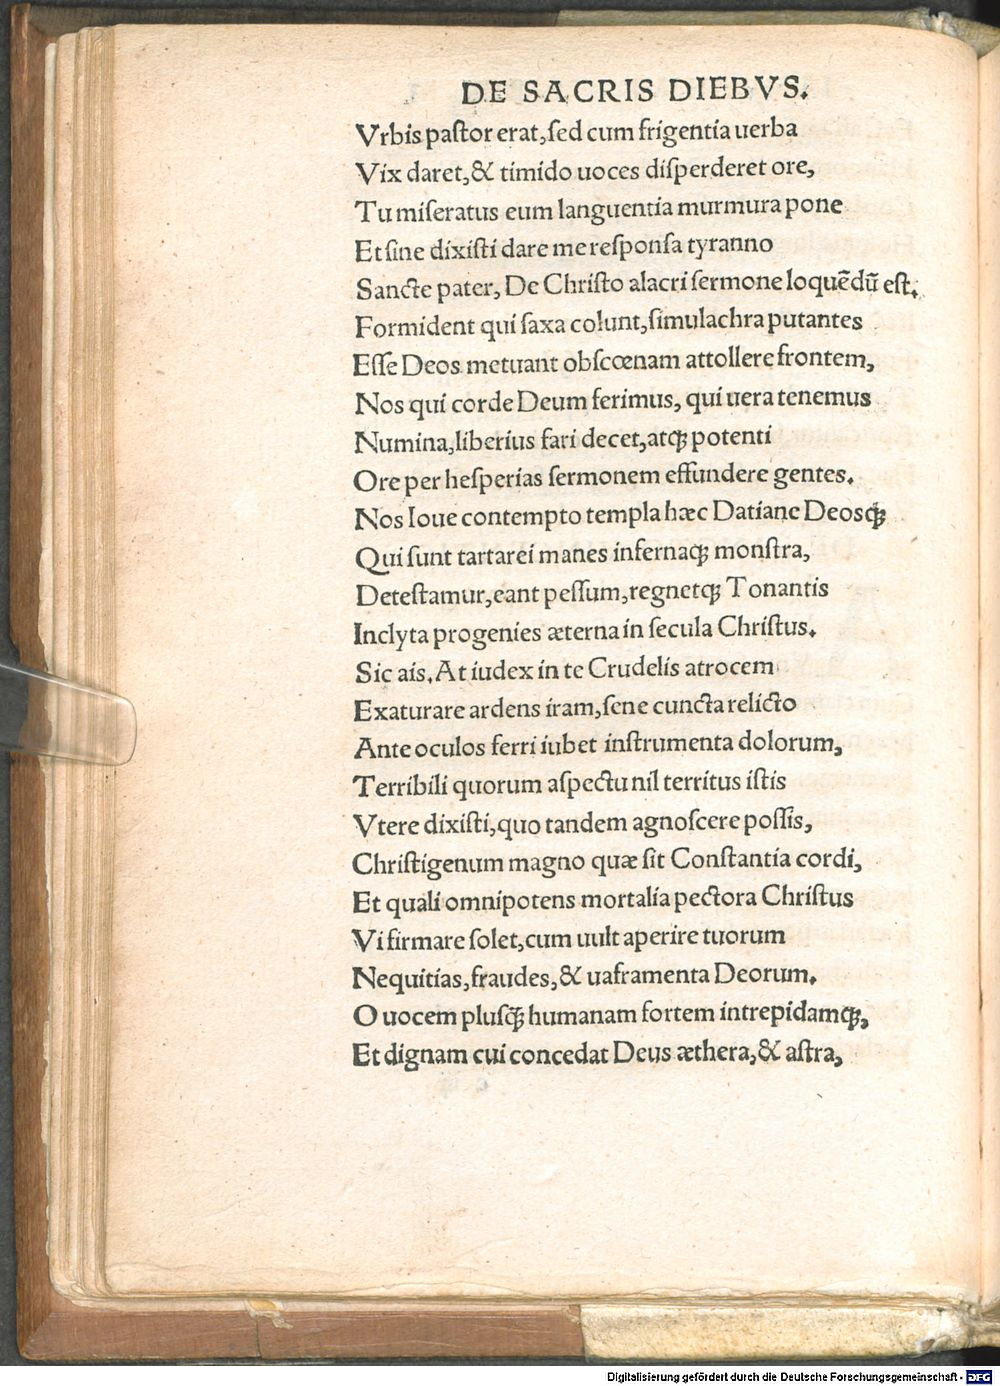 DE SACRIS DIEBVS.
Vrbis paſtor erat, ſed cum frigentia uerba
Vix daret, & timido uoces diſperderet ore,
Tu miſeratus eum languentia murmura pone
Et ſine dixiſti dare me reſponſa tyranno
Sancte pater, De Chriſto alacri ſermone loquēdū eſt.
Formident qui ſaxa colunt, ſimulachra putantes
Eſſe Deos metuant obſcœnam attollere frontem,
Nos qui corde Deum ferimus, qui uera tenemus
Numina, liberius fari decet, atqꝫ potenti
Ore per heſperias ſermonem effundere gentes.
Nos Ioue contempto templa hæc Datiane Deosqꝫ
Qui ſunt tartarei manes infernaqꝫ monſtra,
Deteſtamur, eant peſſum, regnetqꝫ Tonantis
Inclyta progenies æterna in ſecula Chriſtus.
Sic ais. At iudex in te Crudelis atrocem
Exaturare ardens iram, ſene cuncta relicto
Ante oculos ferri iubet inſtrumenta dolorum,
Terribili quorum aſpectu nil territus iſtis
Vtere dixiſti, quo tandem agnoſcere poſſis,
Chriſtigenum magno quæ ſit Conſtantia cordi,
Et quali omnipotens mortalia pectora Chriſtus
Vi firmare ſolet, cum uult aperire tuorum
Nequitias, fraudes, & uaframenta Deorum.
O uocem pluſqꝫ humanam fortem intrepidamqꝫ,
Et dignam cui concedat Deus æthera, & aſtra,
Digitalisierung gefördert durch die Deutsche Forschungsgemeinschaft - DFG